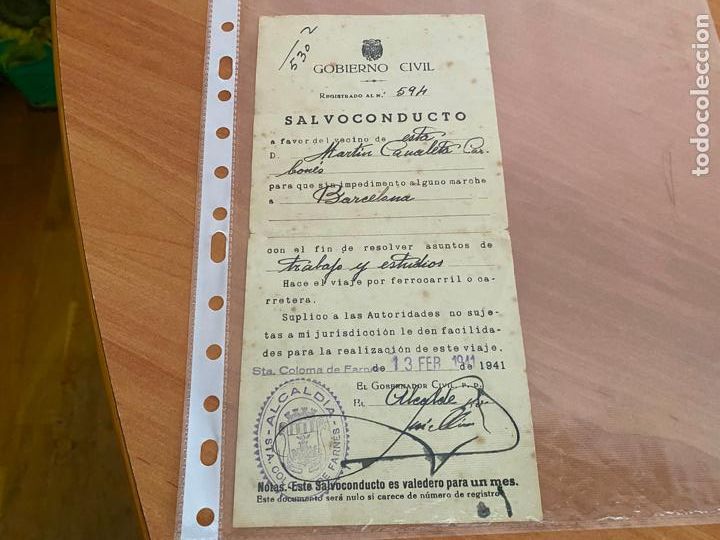 530 2
GOBIERNO CIVIL
REGISTRADO AL N.º 594
SALVOCONDUCTO
a favor del vecino de esta
D. Martin Canaleta Car-
bonés
para que sin impedimento alguno marche
a Barcelona
con el fin de resolver asuntos de
trabajo y estudios
Hace el viaje por ferrocarril o ca-
rretera.
Suplico a las Autoridades no suje-
tas a mi jurisdicción le den facilida-
des para la realización de este viaje.
Sta. Coloma de Farnés de 13 FEB 1941 de 1941
EL GOBERNADOR CIVIL, P. D.
EL Alcalde
ALCALDIA
STA. COLOMA DE FARNÉS
Notas.-Este Salvoconducto es valedero para un mes.
Este documento será nulo si carece de número de registro
todocoleccion.net